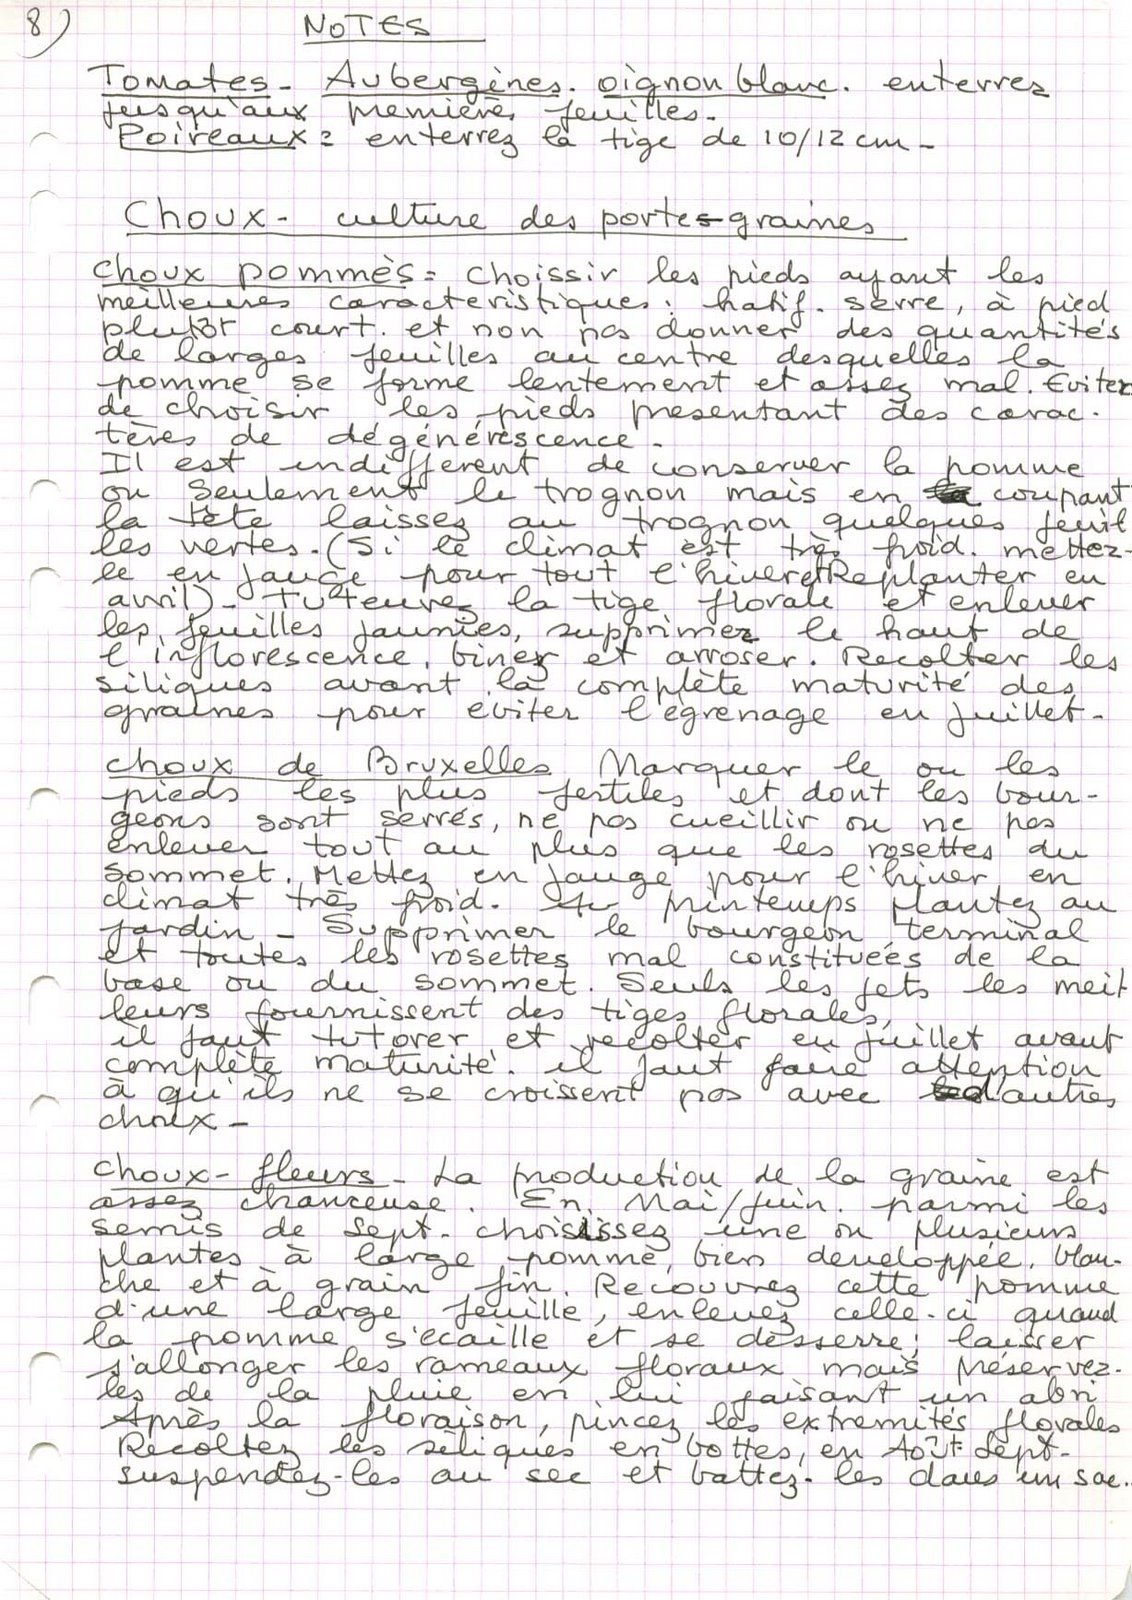 8)
NOTES
Tomates - Aubergènes. oignon blanc. enterrez
jusqu'aux premières feuilles.
Poireaux = enterrez la tige de 10/12 cm -
Choux - culture des portes-graines
choux pommès = choissir les pieds ayant les
meilleures caracteristiques : hatif. serre, à pied
plutôt court. et non pas donner des quantités
de larges feuilles au centre desquelles la
pomme se forme lentement et assez mal. Eviter
de choisir les pieds presentant des carac-
tères de dégénérescence -
Il est indifferent de conserver la pomme
ou seulement le trognon mais en coupant
la tête laissez au trognon quelques feuil
les vertes. (Si le climat est très froid. mettez-
le en jauge pour tout l'hiver et Replanter en
avril) - Tuteurez la tige florale et enlever
les feuilles jaunies, supprimez le haut de
l'inflorescence, binez et arroser. Recolter les
siliques avant la complète maturité des
graines pour eviter l'egrenage en juillet -
choux de Bruxelles Marquer le ou les
pieds les plus fertiles et dont les bour-
geons sont serrés, ne pas cueillir ou ne pas
enlever tout au plus que les rosettes du
sommet. Mettez en jauge pour l'hiver en
climat très froid. Au printemps plantez au
jardin - Supprimer le bourgeon terminal
et toutes les rosettes mal constituées de la
base ou du sommet. Seuls les jets les meil
leurs fournissent des tiges florales,
il faut tutorer et recolter en juillet avant
complète maturité. il faut faire attention
à qu'ils ne se croissent pas avec d'autres
choux -
choux - fleurs - La production de la graine est
assez chanceuse. En Mai/juin. parmi les
semis de Sept. choisissez une ou plusieurs
plantes à large pomme, bien developpée, blan-
che et à grain fin. Recouvrez cette pomme
d'une large feuille, enlevez celle-ci quand
la pomme s'ecaille et se desserre ; laisser
s'allonger les rameaux floraux mais préservez-
les de la pluie en lui faisant un abri
Après la floraison, pincez les extremités florales
Recoltez les siliques en bottes, en Août-Sept-
suspendez-les au sec et battez-les dans un sac.